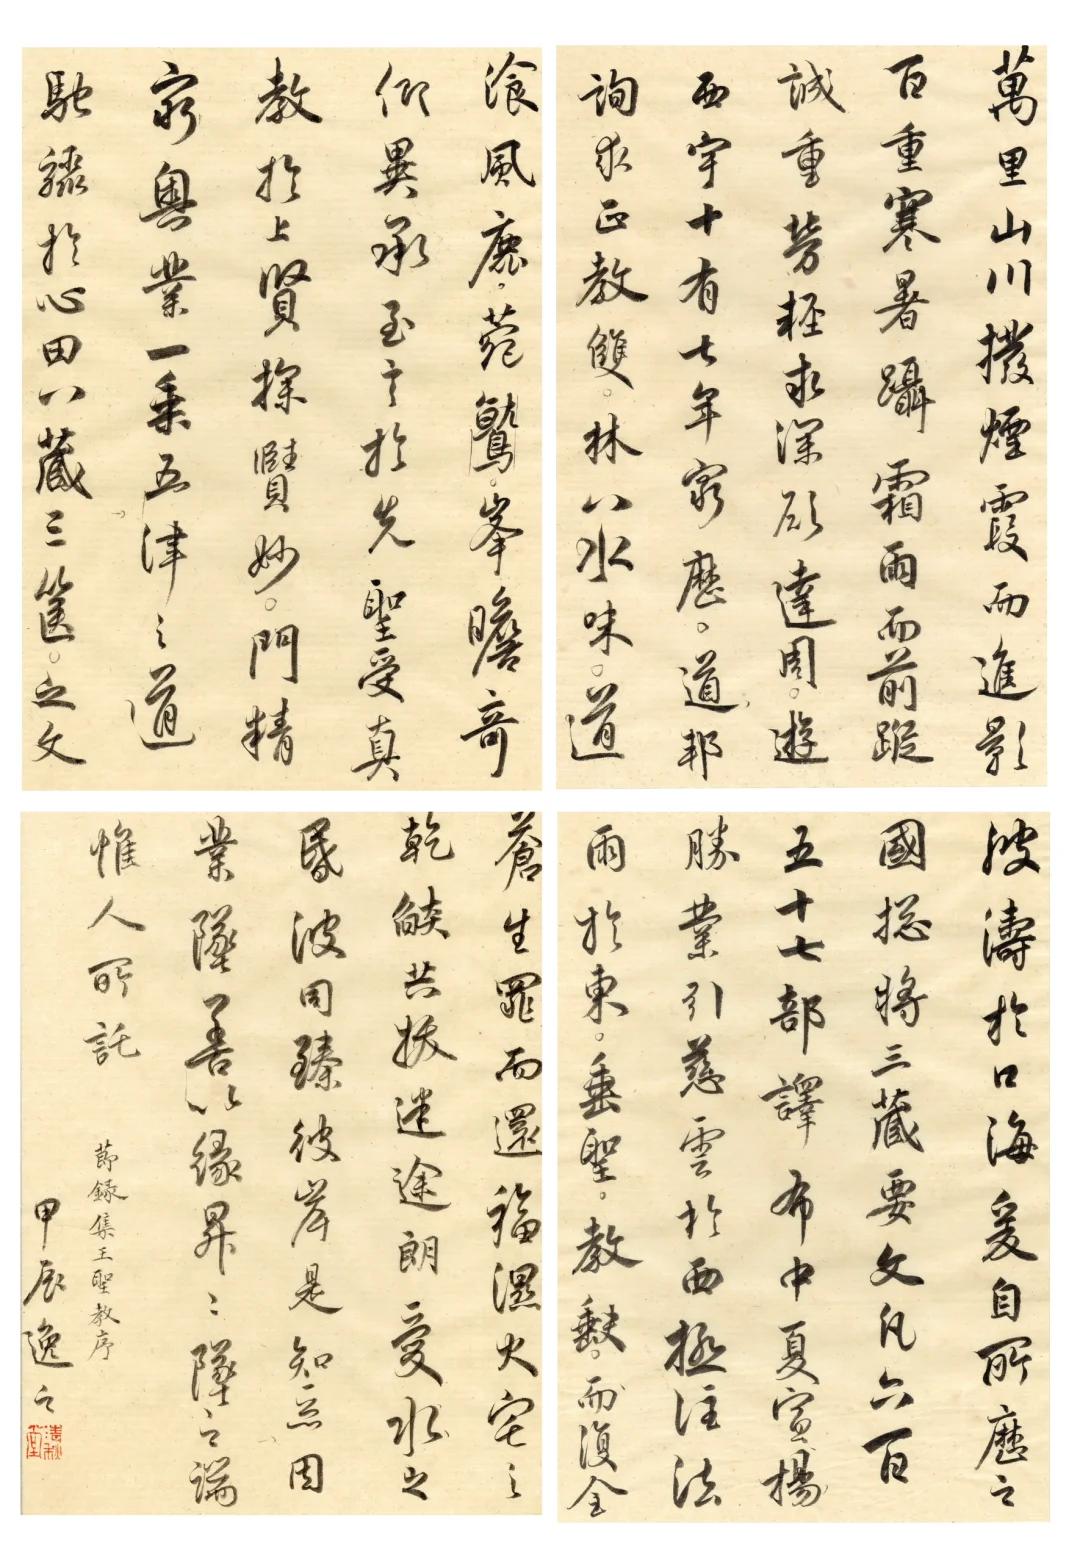 萬里山川撥煙霞而進影
百重寒暑躡霜雨而前蹤
誠重勞輕求深願達周遊
西宇十有七年窮歷道邦
詢求正教雙林八水味道
飡風鹿菀鷲峯瞻奇
仰異承至言於先聖受真
教於上賢探賾妙門精
窮奧業一乘五津之道
馳驟於心田八藏三篋之文
波濤於口海爰自所歷之
國揔將三藏要文凡六百
五十七部譯布中夏宣揚
勝業引慈雲於西極注法
雨於東垂聖教缺而復全
蒼生罪而還福濕火宅之
乾燄共拔迷途朗愛水之
昏波同臻彼岸是知惡因
業墜善以緣昇〻墜之端
惟人所託
節錄集王聖教序
甲辰逸之